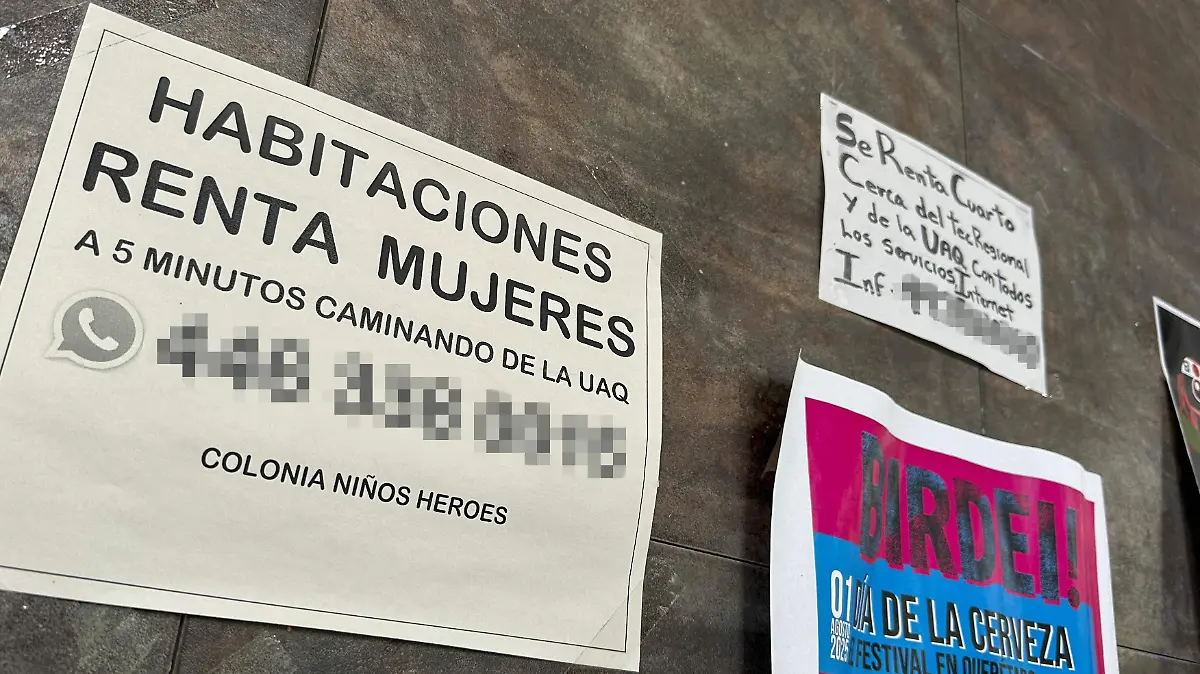 HABITACIONES
RENTA MUJERES
A 5 MINUTOS CAMINANDO DE LA UAQ
COLONIA NIÑOS HEROES
Se Renta Cuarto
Cerca del tec Regional
y de la UAQ con todos
los servicios Internet
Inf.
BIRDEI!
01
AGOSTO
2025
DÍA DE LA CERVEZA
FESTIVAL EN QUERÉTARO